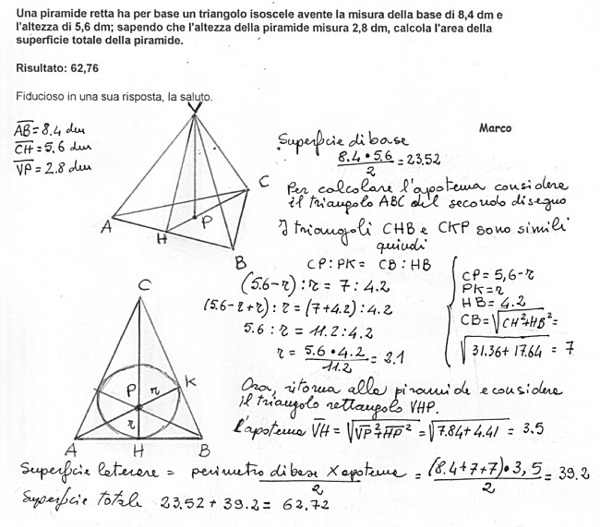 Una piramide retta ha per base un triangolo isoscele avente la misura della base di 8,4 dm e
l'altezza di 5,6 dm; sapendo che l'altezza della piramide misura 2,8 dm, calcola l'area della
superficie totale della piramide.
Risultato: 62,76
Fiducioso in una sua risposta, la saluto.
Marco
AB = 8.4 dm
CH = 5.6 dm
VP = 2.8 dm
V
A
H
P
C
B
Superficie di base
8.4 • 5.6 / 2 = 23.52
Per calcolare l'apotema considera
il triangolo ABC del secondo disegno
I triangoli CHB e CKP sono simili
quindi
CP : PK = CB : HB
(5.6 - r) : r = 7 : 4.2
(5.6 - r + r) : r = (7 + 4.2) : 4.2
5.6 : r = 11.2 : 4.2
r = 5.6 • 4.2 / 11.2 = 2.1
CP = 5,6 - r
PK = r
HB = 4.2
CB = √CH² + HB² =
√31.36 + 17.64 = 7
C
P
r
K
r
A
H
B
Ora, ritorna alla piramide e considera
il triangolo rettangolo VHP.
l'apotema VH = √VP² + HP² = √7.84 + 4.41 = 3.5
Superficie laterale = perimetro di base x apotema / 2 = (8.4 + 7 + 7) • 3,5 / 2 = 39.2
Superficie totale 23.52 + 39.2 = 62,72